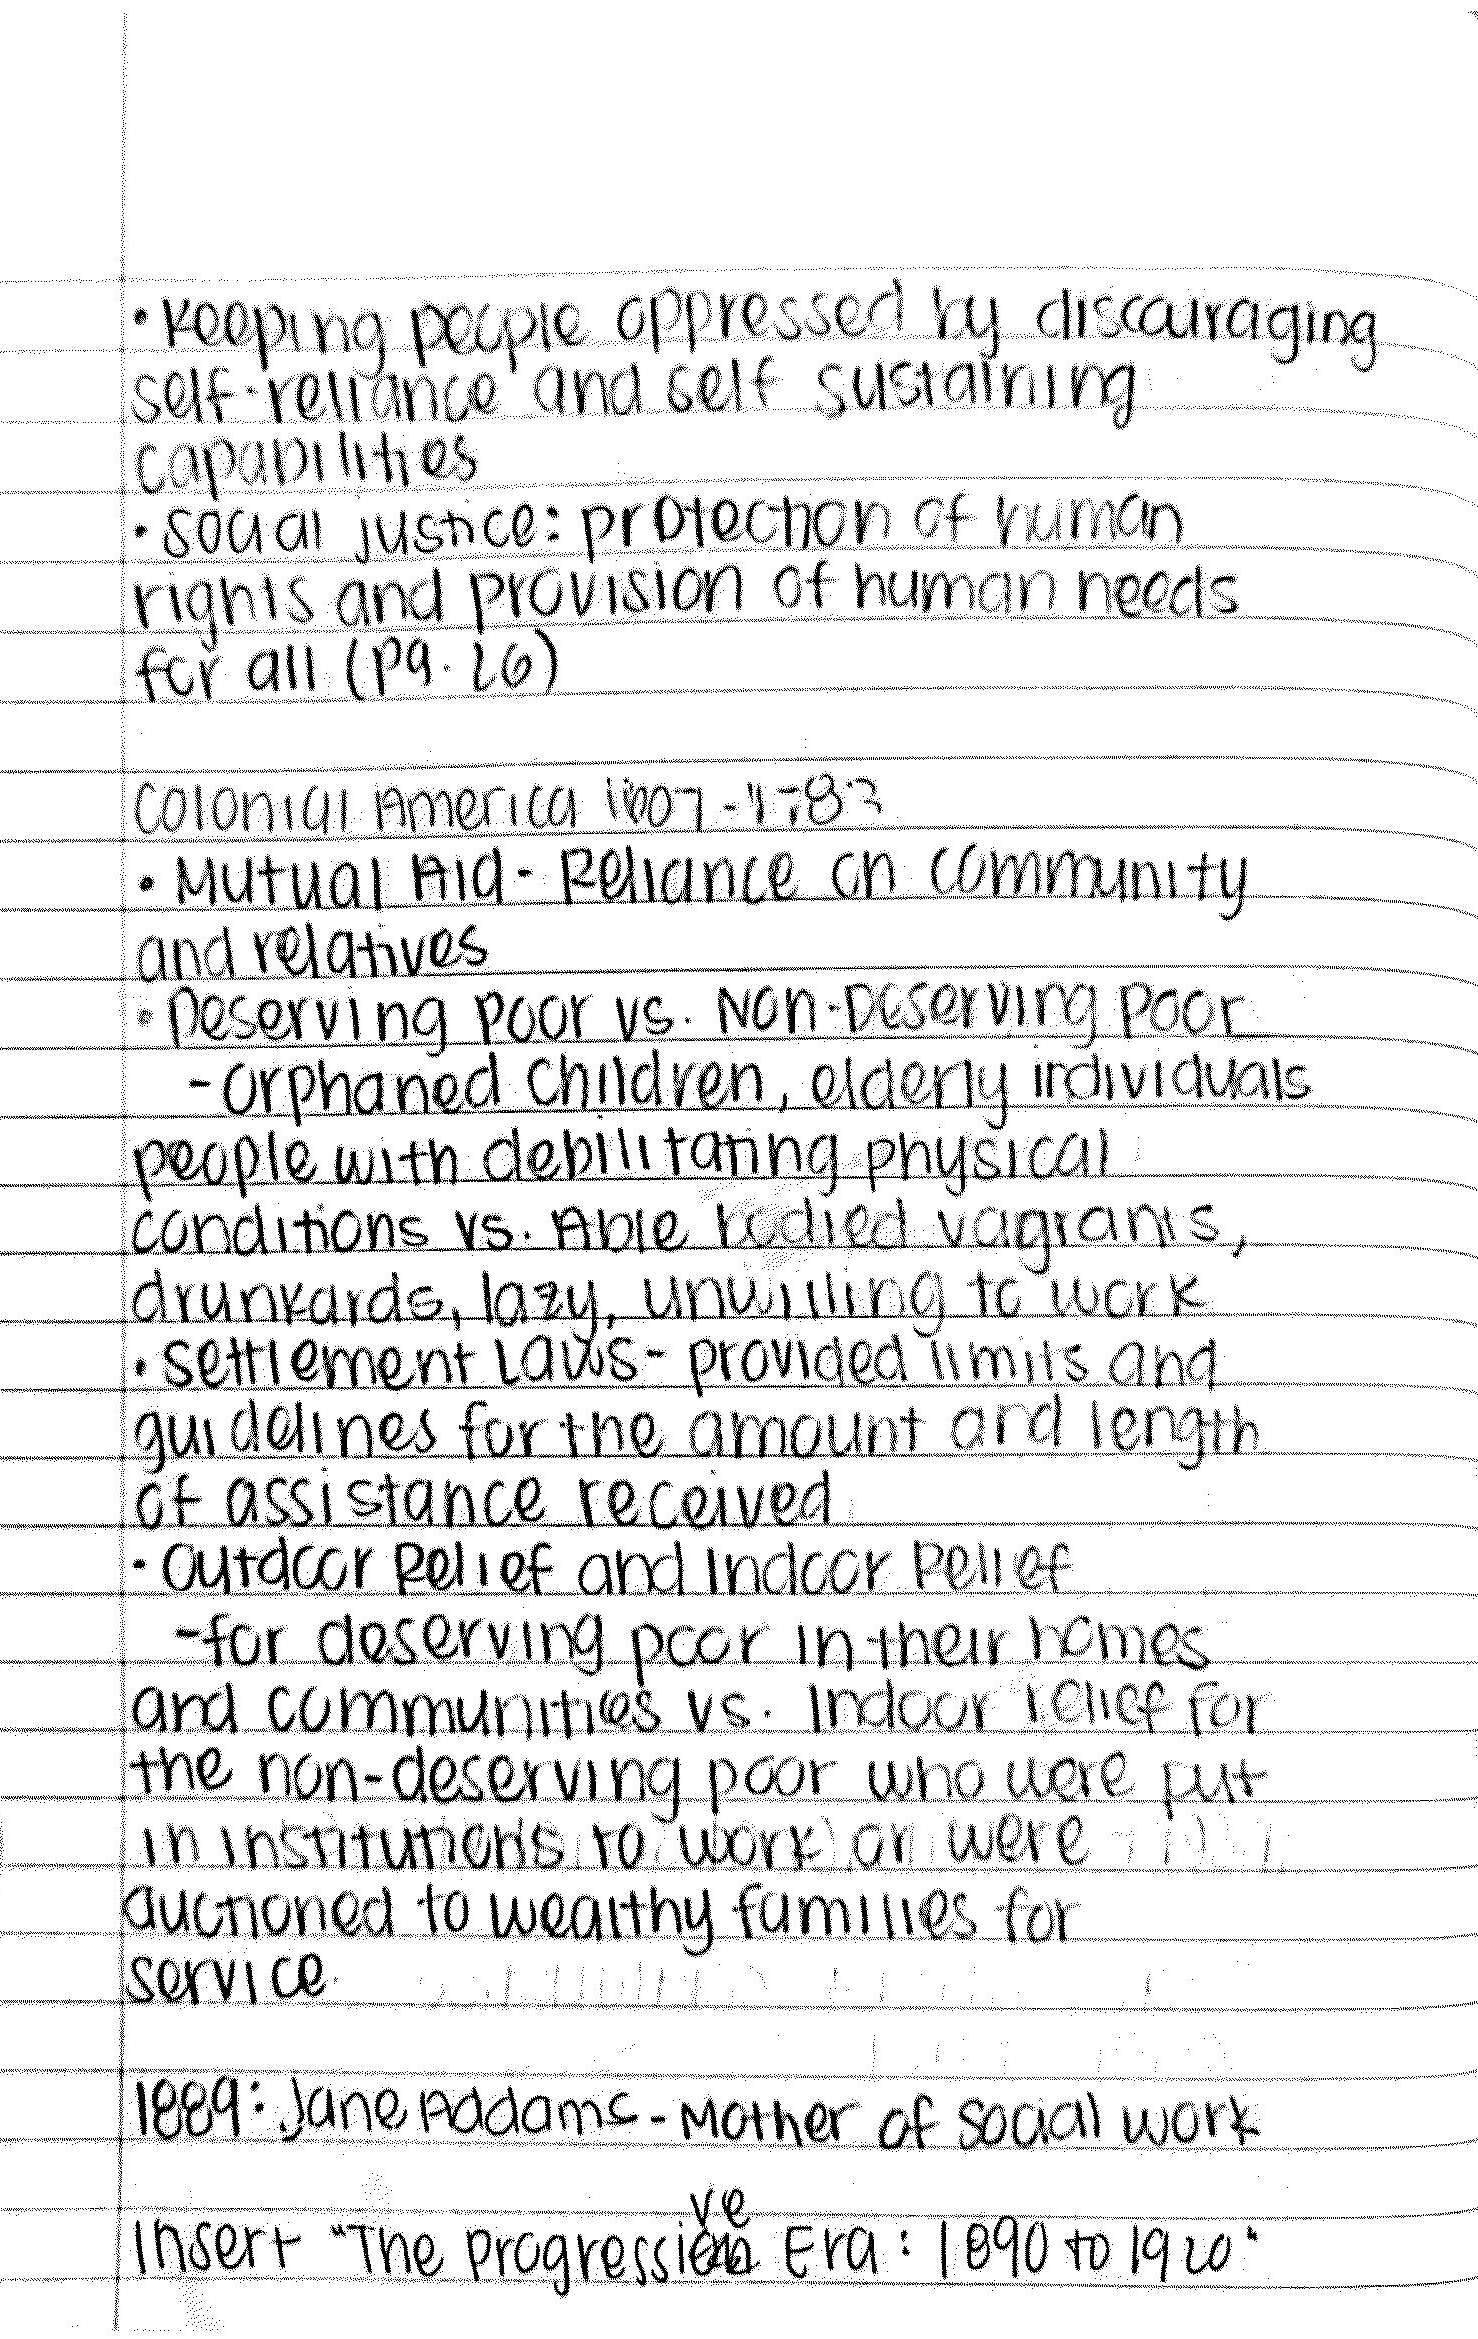 • Keeping people oppressed by discouraging
self-reliance and self sustaining
capabilities
• Social justice: protection of human
rights and provision of human needs
for all (pg. 26)
Colonial America 1607-1783
• Mutual Aid - Reliance on community
and relatives
• Deserving poor vs. Non-Deserving poor
- Orphaned children, elderly individuals
people with debilitating physical
conditions vs. Able bodied vagrants,
drunkards, lazy, unwilling to work
• Settlement Laws - provided limits and
guidelines for the amount and length
of assistance received
• Outdoor Relief and Indoor Relief
- for deserving poor in their homes
and communities vs. Indoor relief for
the non-deserving poor who were put
in institutions to work or were
auctioned to wealthy families for
service
1889: Jane Addams - Mother of social work
Insert "The Progressive Era: 1890 to 1920"